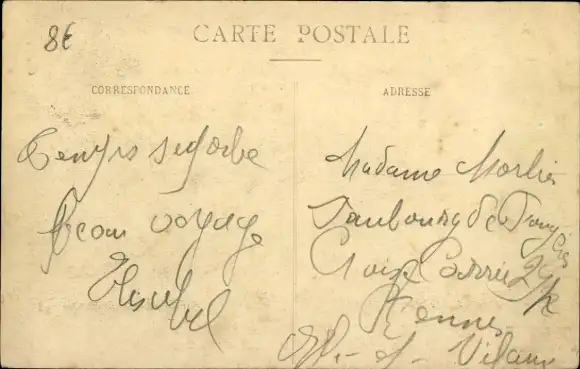 8€
CARTE POSTALE
CORRESPONDANCE
Temps superbe
Beau voyage
ADRESSE
Madame Morlier
Faubourg de Fougères
Croix Carrée
Rennes
Ille-et-Vilaine